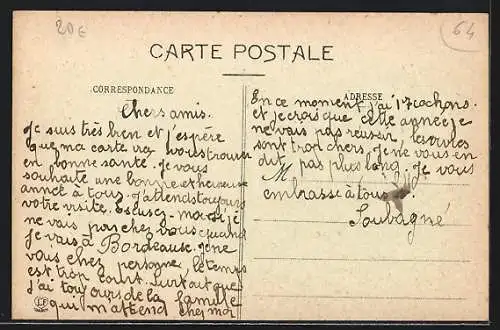 20€
64
CARTE POSTALE
CORRESPONDANCE
ADRESSE
Chers amis.
Je suis très bien et j'espère
que ma carte va vous trouver
en bonne santé. Je vous
souhaite une bonne et heureuse
année à tous. J'attends toujours
votre visite. Escusez-moi si je
ne vais pas chez vous quand
je vais à Bordeause. Je ne
vous chez personne, le temps
est trop court. Surtout que
j'ai toujours de la famille
qui m'attend chez moi
En ce moment j'ai 17 cochons.
et je crois que cette année je
ne vais pas réussir, les
sont trop chers. Je ne vous en
dit pas plus long. Je vous
M
embrasse à tous.
Soubagné
LF